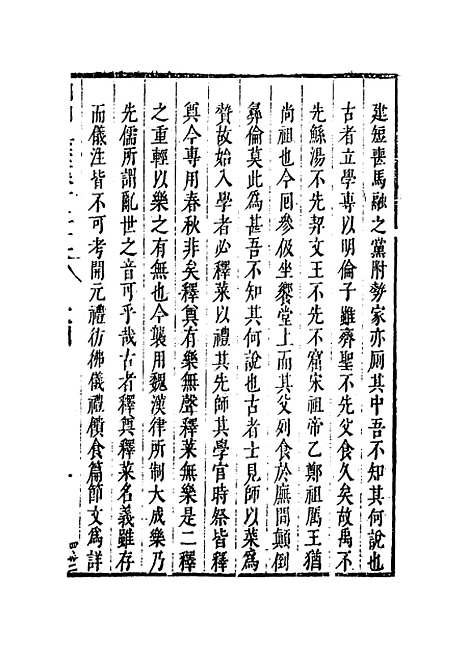 建短喪馬融之黨附勢家亦厠其中吾不知其何說也
古者立學專以明倫子雖齊聖不先父食久矣故禹不
先鯀湯不先契文王不先不窋宋祖帝乙鄭祖厲王猶
尚祖也今囘參伋坐饗堂上而其父列食於廡間顛倒
彞倫莫此為甚吾不知其何說也古者士見師以菜為
贄故始入學者必釋菜以禮其先師其學官時祭皆釋
奠今專用春秋非矣釋奠有樂無聲釋菜無樂是二釋
之重輕以樂之有無也今襲用魏漢律所制大成樂乃
先儒所謂亂世之音可乎哉古者釋奠釋菜名義雖存
而儀注皆不可考開元禮彷彿儀禮饋食篇節文為詳